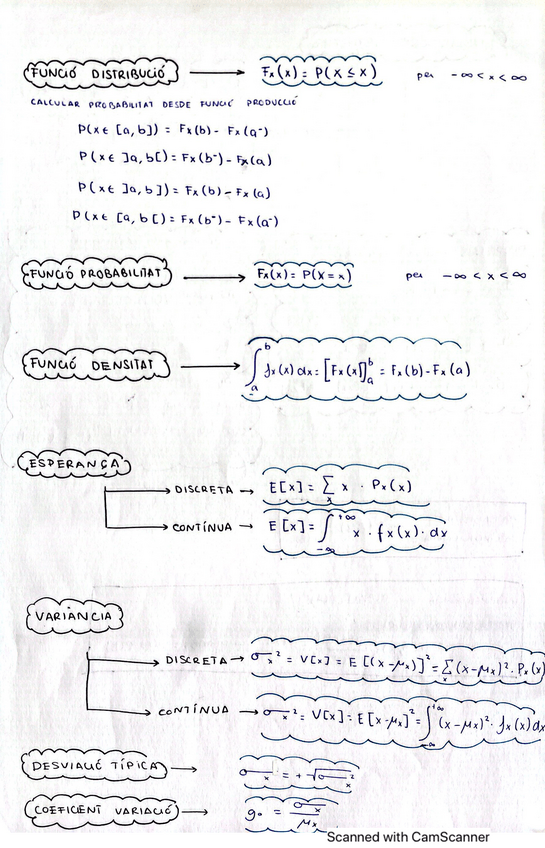 FUNCIÓ DISTRIBUCIÓ → Fx(x) = P(X ≤ x) per -∞ < x < ∞
CALCULAR PROBABILITAT DESDE FUNCIÓ PRODUCCIÓ
P(x ∈ [a, b]) = Fx(b) - Fx(a⁻)
P(x ∈ ]a, b[) = Fx(b⁻) - Fx(a)
P(x ∈ ]a, b]) = Fx(b) - Fx(a)
P(x ∈ [a, b[) = Fx(b⁻) - Fx(a⁻)
FUNCIÓ PROBABILITAT → Fx(x) = P(X = x) per -∞ < x < ∞
FUNCIÓ DENSITAT → ∫ₐᵇ fx(x) dx = [Fx(x)]ₐᵇ = Fx(b) - Fx(a)
ESPERANÇA
→ DISCRETA → E[x] = Σₓ x · Px(x)
→ CONTÍNUA → E[x] = ∫₋∞⁺∞ x · fx(x) · dx
VARIÀNCIA
→ DISCRETA → σx² = V[x] = E[(x-μx)]² = Σₓ (x-μx)² · Px(x)
→ CONTÍNUA → σx² = V[x] = E[x-μx]² = ∫₋∞⁺∞ (x-μx)² · fx(x) dx
DESVIACIÓ TÍPICA → σx = +√σx²
COEFICIENT VARIACIÓ → g₀ = σx / μx
Scanned with CamScanner